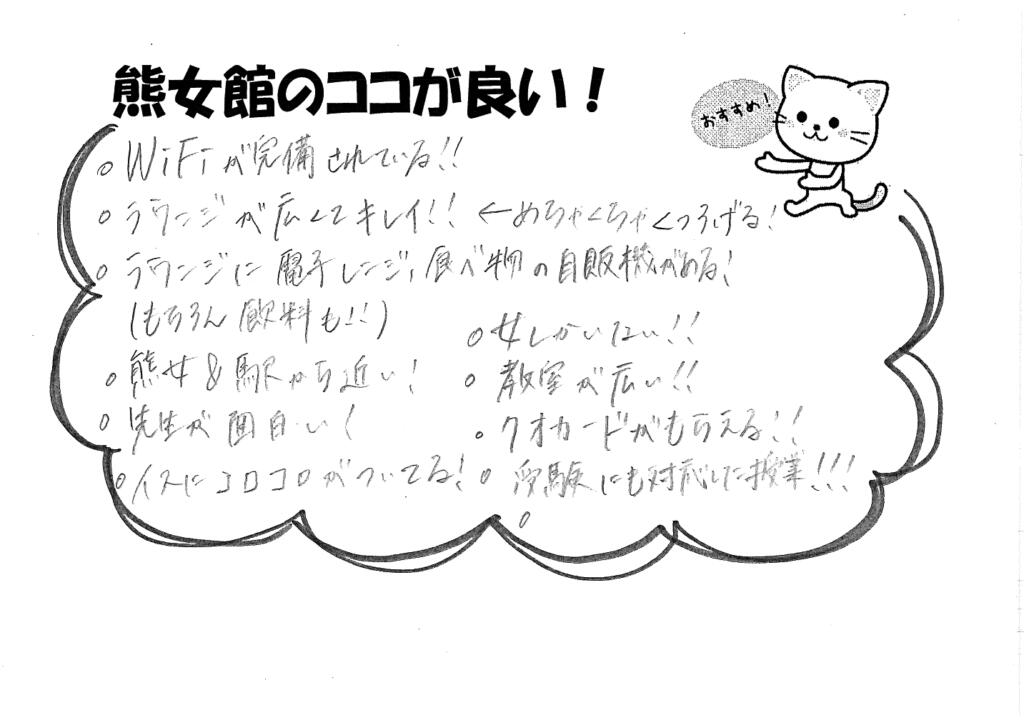 熊女館のココが良い！
おすすめ！
○ WiFiが完備されている!!
○ ラウンジが広くてキレイ!! ←めちゃくちゃくつろげる!
○ ラウンジに電子レンジ、食べ物の自販機がある!
(もちろん飲料も!!)
○ 女しかいない!!
○ 熊女&駅から近い!
○ 教室が広い!!
○ 先生が面白い!
○ クオカードがもらえる!!
○ イスにコロコロがついてる!
○ 受験にも対応した授業!!!
○